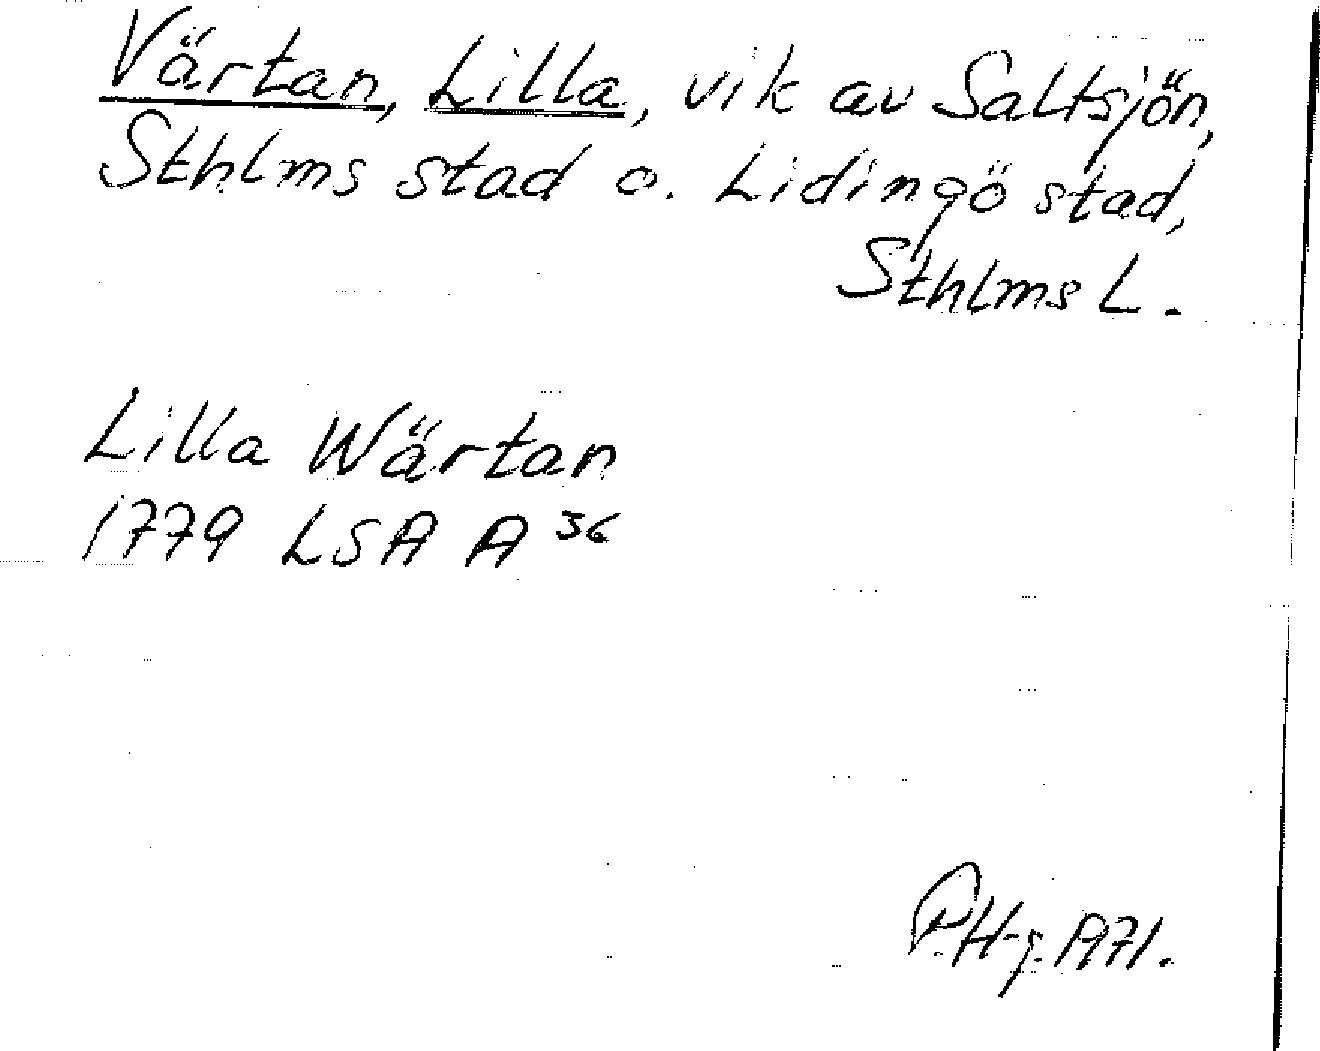 Värtan, Lilla, vik av Saltsjön,
Sthlms stad o. Lidingö stad,
Sthlms L.
Lilla Wärtan
1779 LSA A 36